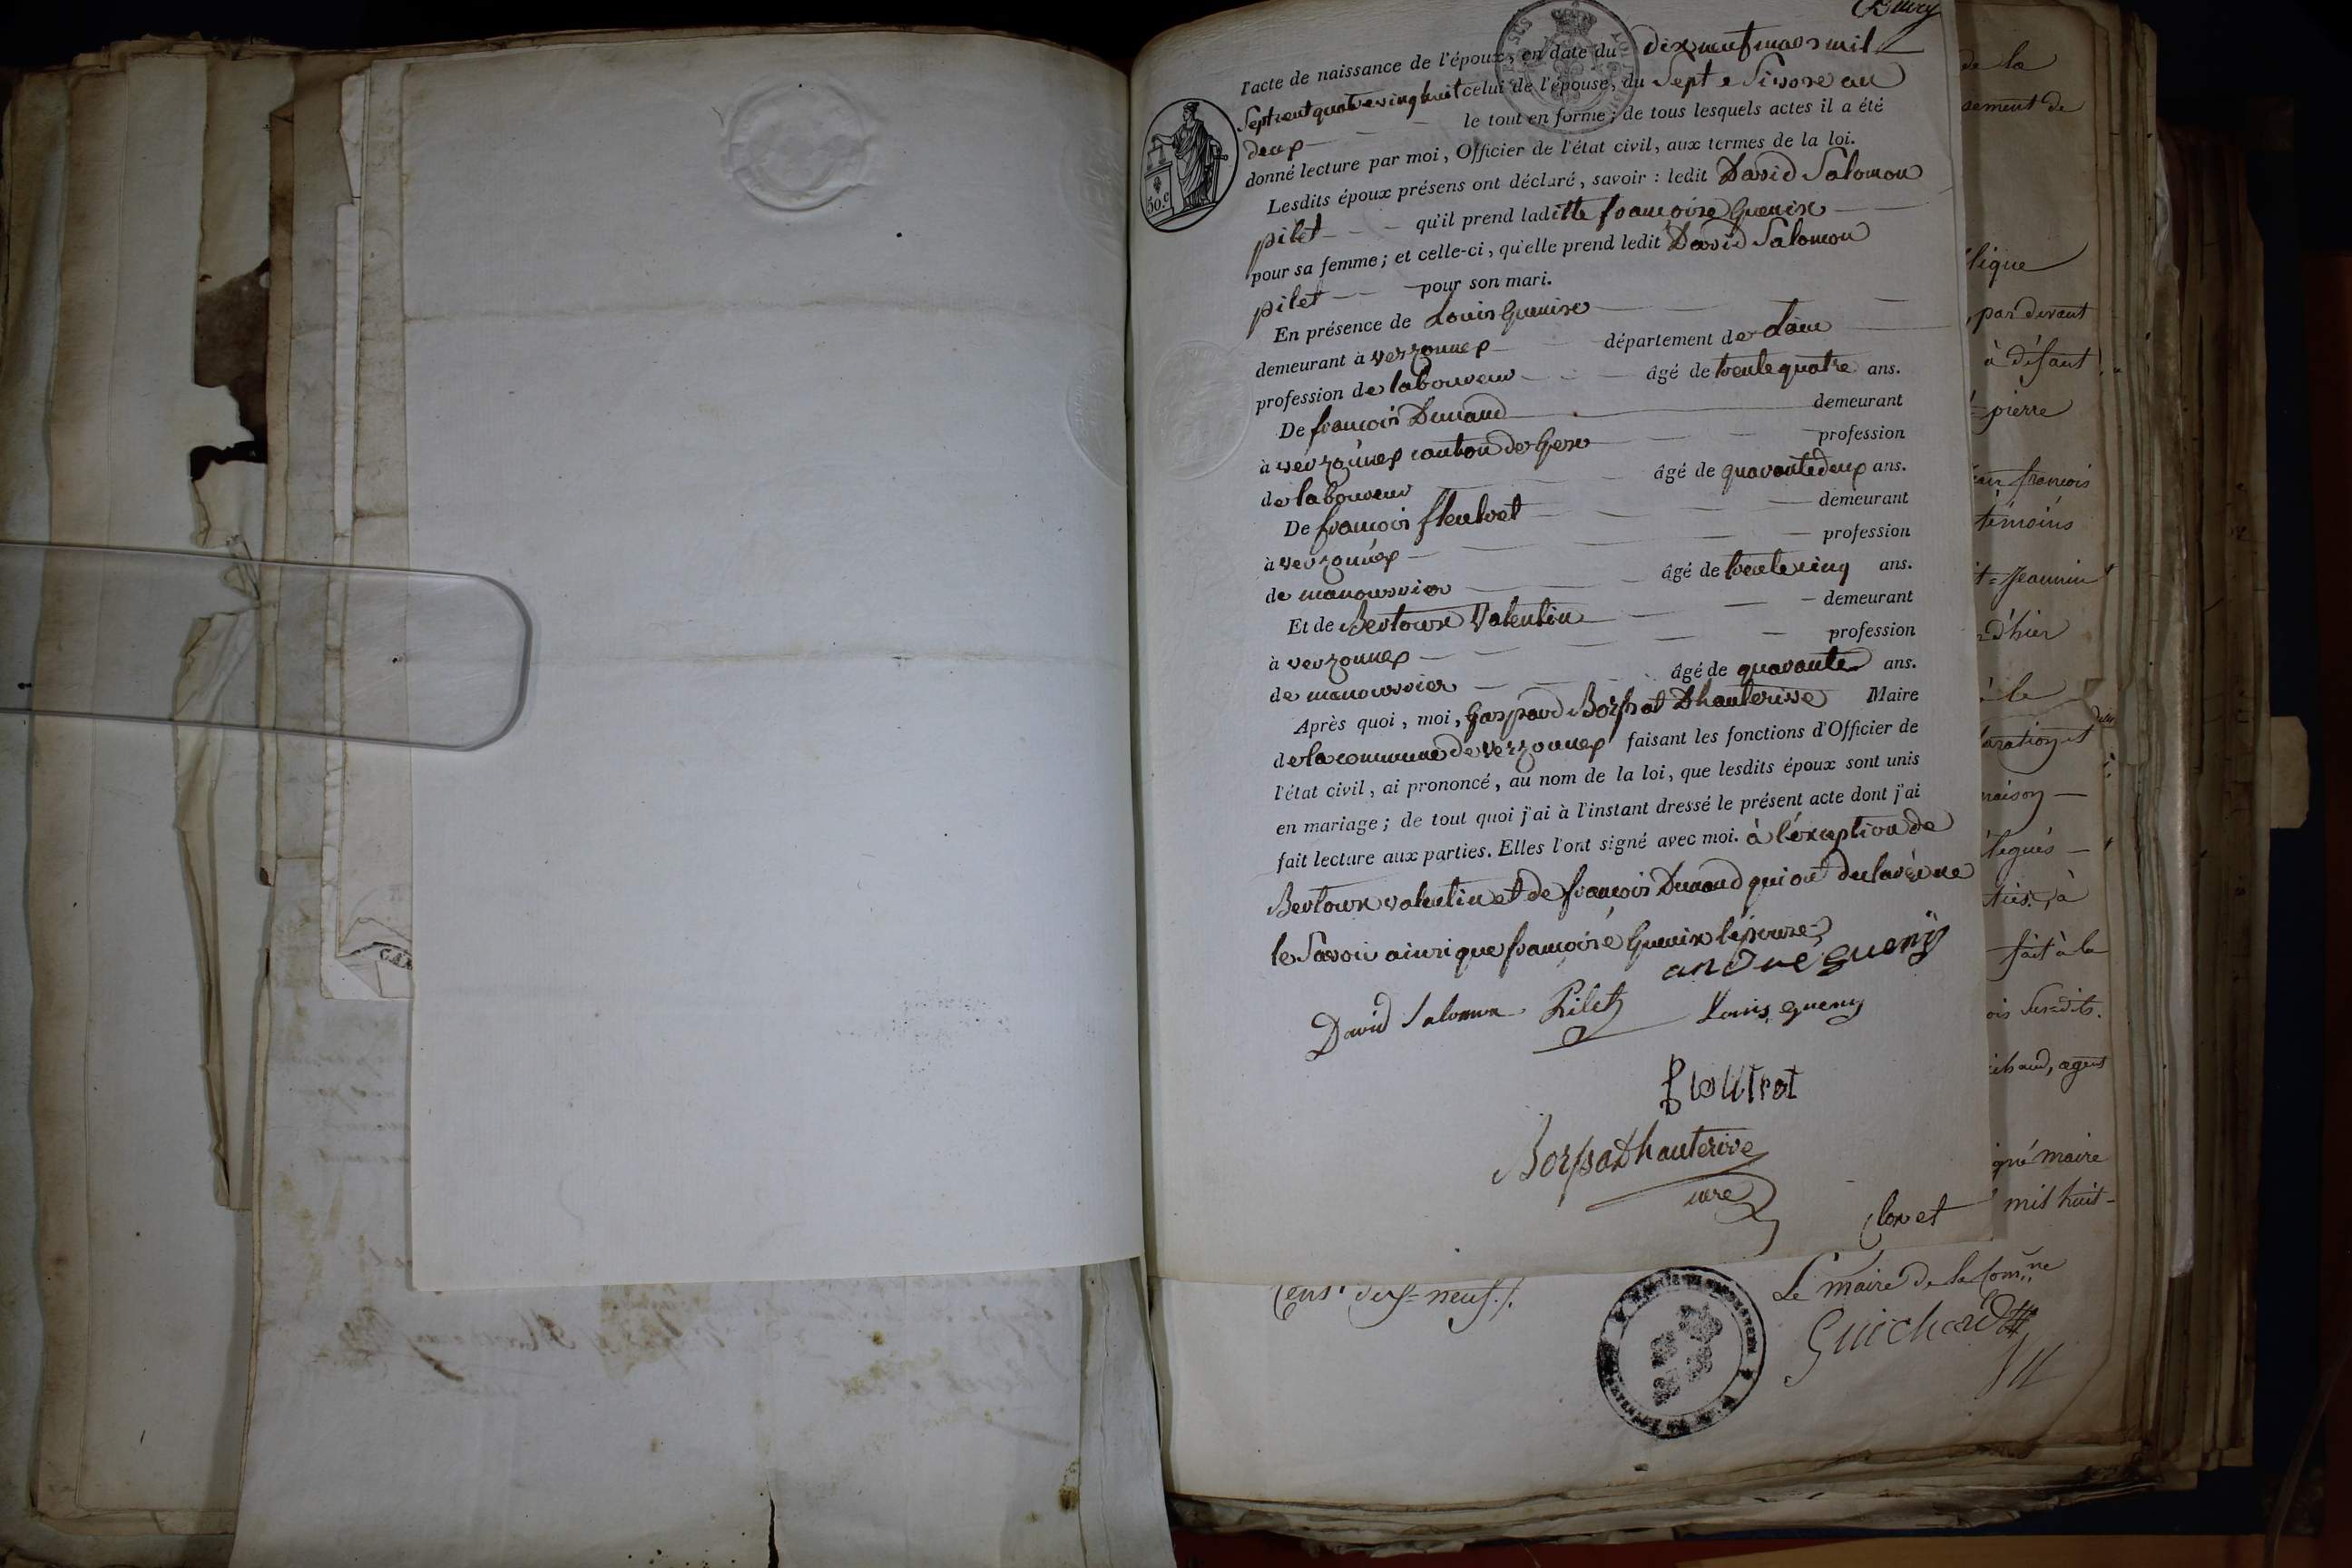 l'acte de naissance de l'époux, en date du dixneuf mars mil
Septcentquatrevinghuit celui de l'épouse, du Sept Nivose an
deux le tout en forme; de tous lesquels actes il a été
donné lecture par moi, Officier de l'état civil, aux termes de la loi.
Lesdits époux présens ont déclaré, savoir : ledit David Salomon
pilet qu'il prend laditte françoise Guenix
pour sa femme; et celle-ci, qu'elle prend ledit David Salomon
pilet pour son mari.
En présence de Louis Guenix
demeurant à versonnex département de Lain
profession de laboureur âgé de trentequatre ans.
De françois Dunand demeurant
à versonnex canton de Gex profession
de laboureur âgé de quarantedeux ans.
De françois fleutret demeurant
à versonnex profession
de manouvrier âgé de trentecinq ans.
Et de Bertoux Valentin demeurant
à versonnex profession
de manouvrier âgé de quarante ans.
Après quoi, moi, Gaspard Borssat Dhauterive Maire
de la commune de versonnex faisant les fonctions d'Officier de
l'état civil, ai prononcé, au nom de la loi, que lesdits époux sont unis
en mariage; de tout quoi j'ai à l'instant dressé le présent acte dont j'ai
fait lecture aux parties. Elles l'ont signé avec moi. à l'exception de
Bertoux valentin et de françois Dunand qui ont
le Savoir ainsi que françoise Guenix l'épouse
andre gueny
David Salomon Pilet Louis gueny
fleutret
Borssat Dhauterive
50.c
de la
sement de
lique
par devant
à défaut
pierre
françois
témoins
Jeannin
d'hier
le
naison
légués
fait à la
ois susdits.
agent
maire
mil huit-
Cent dix-neuf.
Le maire de la Comne
Guichard